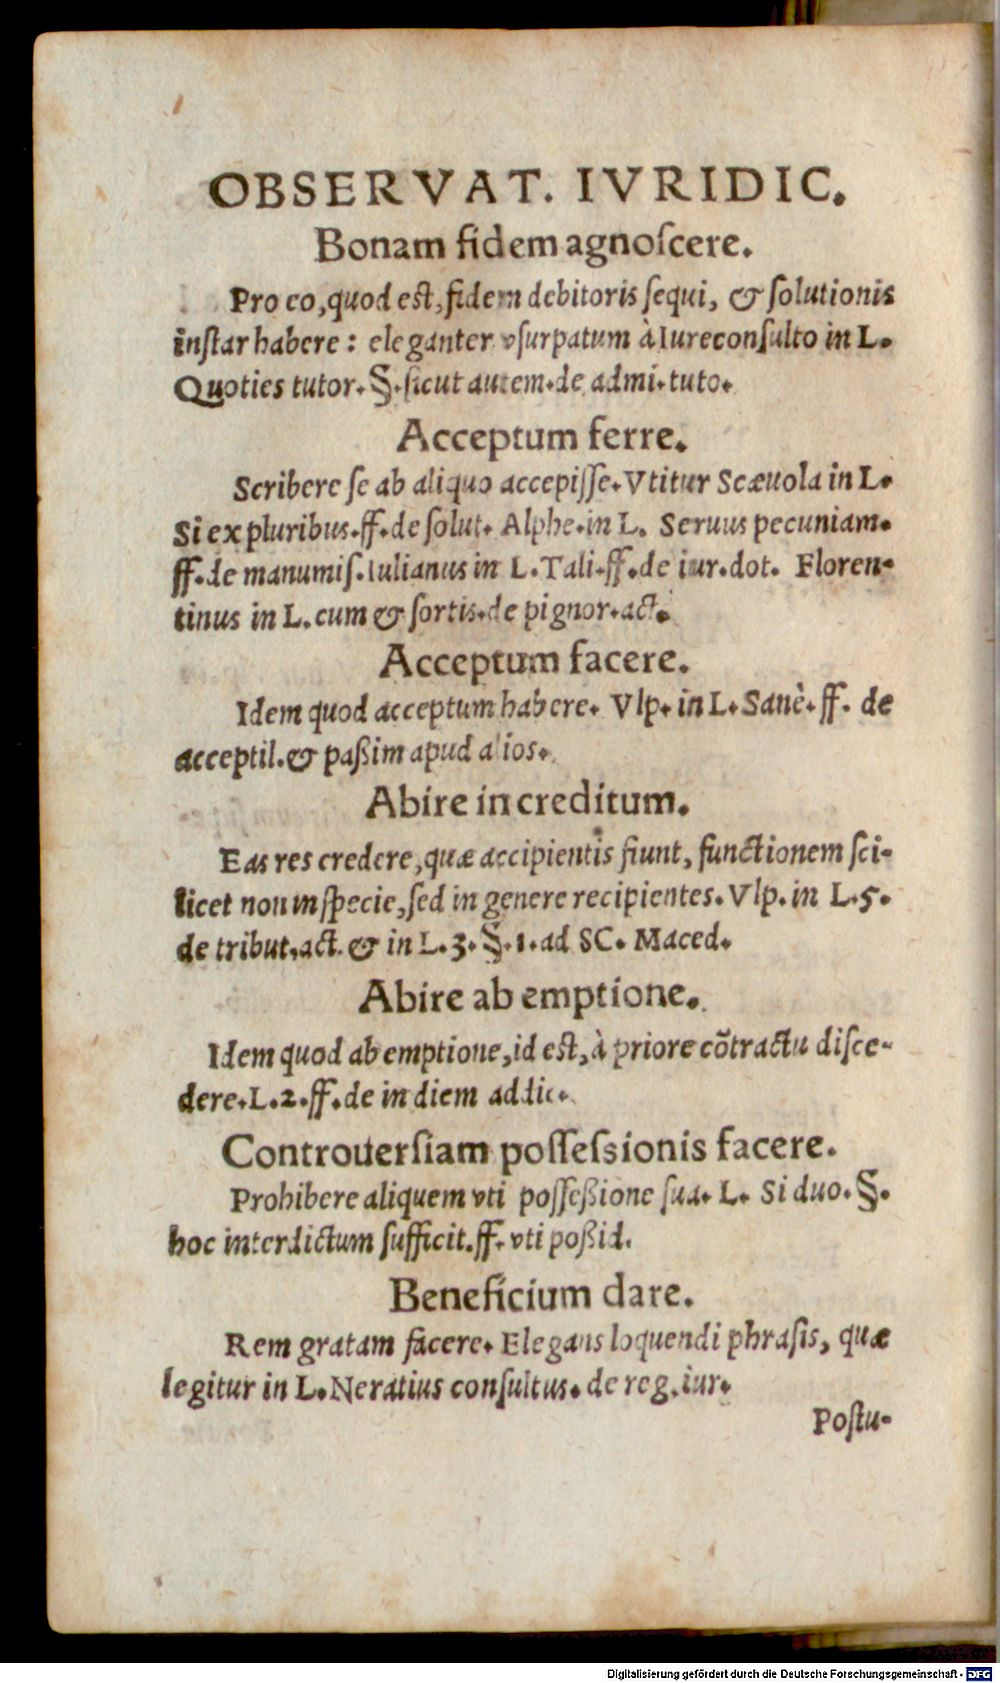 OBSERVAT. IVRIDIC.
Bonam fidem agnoſcere.
Pro eo, quod eſt, fidem debitoris ſequi, & ſolutionis
inſtar habere: eleganter vſurpatum à Iureconſulto in L.
Quoties tutor. §. ſicut autem. de admi. tuto.
Acceptum ferre.
Scribere ſe ab aliquo accepiſſe. Vtitur Scæuola in L.
Si ex pluribus. ff. de ſolut. Alphe. in L. Seruus pecuniam.
ff. de manumiſ. Iulianus in L. Tali. ff. de iur. dot. Floren-
tinus in L. cum & ſortis. de pignor. act.
Acceptum facere.
Idem quod acceptum habere. Vlp. in L. Sanè. ff. de
acceptil. & paßim apud alios.
Abire in creditum.
Eas res credere, quæ accipientis fiunt, functionem ſci-
licet non in ſpecie, ſed in genere recipientes. Vlp. in L. 5.
de tribut. act. & in L. 3. §. 1. ad SC. Maced.
Abire ab emptione.
Idem quod ab emptione, id eſt, à priore cõtractu diſce-
dere. L. 2. ff. de in diem addic.
Controuerſiam poſſeſsionis facere.
Prohibere aliquem vti poſſeßione ſua. L. Si duo. §.
hoc interdictum ſufficit. ff. vti poßid.
Beneficium dare.
Rem gratam facere. Elegans loquendi phraſis, quæ
legitur in L. Neratius conſultus. de reg. iur.
Poſtu-
Digitalisierung gefördert durch die Deutsche Forschungsgemeinschaft - DFG